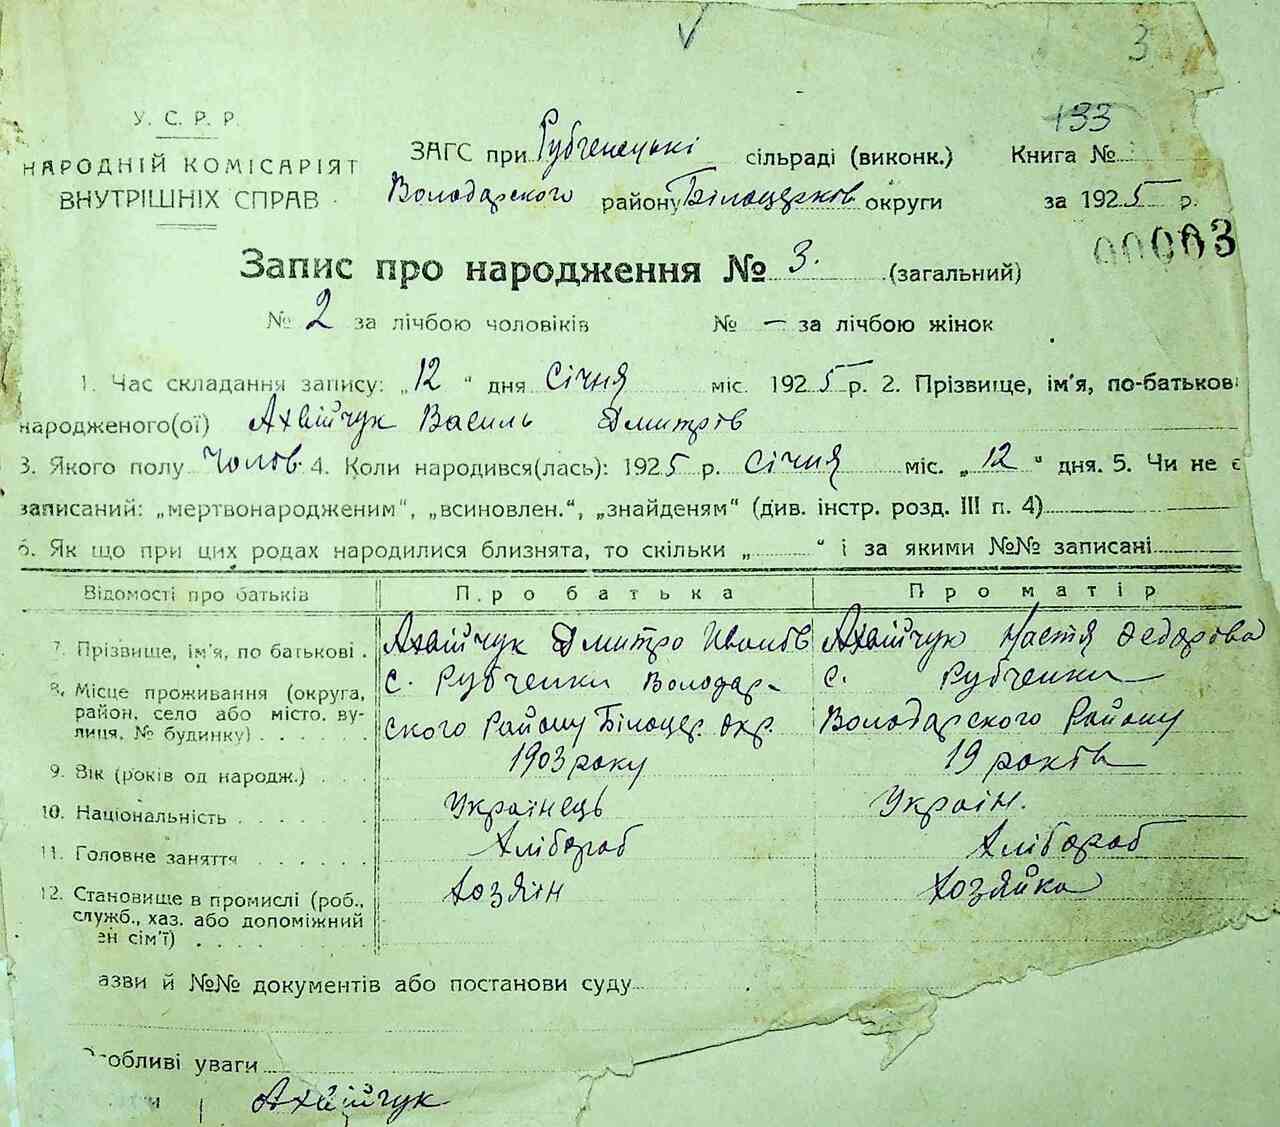 3
133
У. С. Р. Р.
НАРОДНІЙ КОМІСАРІЯТ
ВНУТРІШНІХ СПРАВ
ЗАГС при Рубченецькі сільраді (виконк.) Книга №
Володарского району Білоцерків округи за 1925 р.
00003
Запис про народження № 3. (загальний)
№ 2 за лічбою чоловіків № — за лічбою жінок
1. Час складання запису: „12“ дня Січня міс. 1925 р. 2. Прізвище, ім'я, по-батькові
народженого(ої) Ахвійчук Василь Дмитрів
3. Якого полу Чолов. 4. Коли народився(лась): 1925 р. Січня міс. „12“ дня. 5. Чи не є
записаний: „мертвонародженим“, „всиновлен.“, „знайденям“ (див. інстр. розд. III п. 4)
6. Як що при цих родах народилися близнята, то скільки „ “ і за якими №№ записані
Відомості про батьків Про батька Про матір
7. Прізвище, ім'я, по батькові . Ахвійчук Дмитро Іванів Ахвійчук Настя Федорова
8. Місце проживання (округа, с. Рубченки Володар- с. Рубченки
район, село або місто, ву-
лиця, № будинку) . . . ского Району Білоцер. окр. Володарского Району
9. Вік (років од народж.) . . . 1903 року 19 років
10. Національність . . . . . . Українець Україн.
11. Головне заняття . . . . . . Хлібороб Хлібороб
12. Становище в промислі (роб., Хозяін Хозяйка
служб., хаз. або допоміжний
ен сім'ї) . . . .
азви й №№ документів або постанови суду
Особливі уваги
Ахвійчук